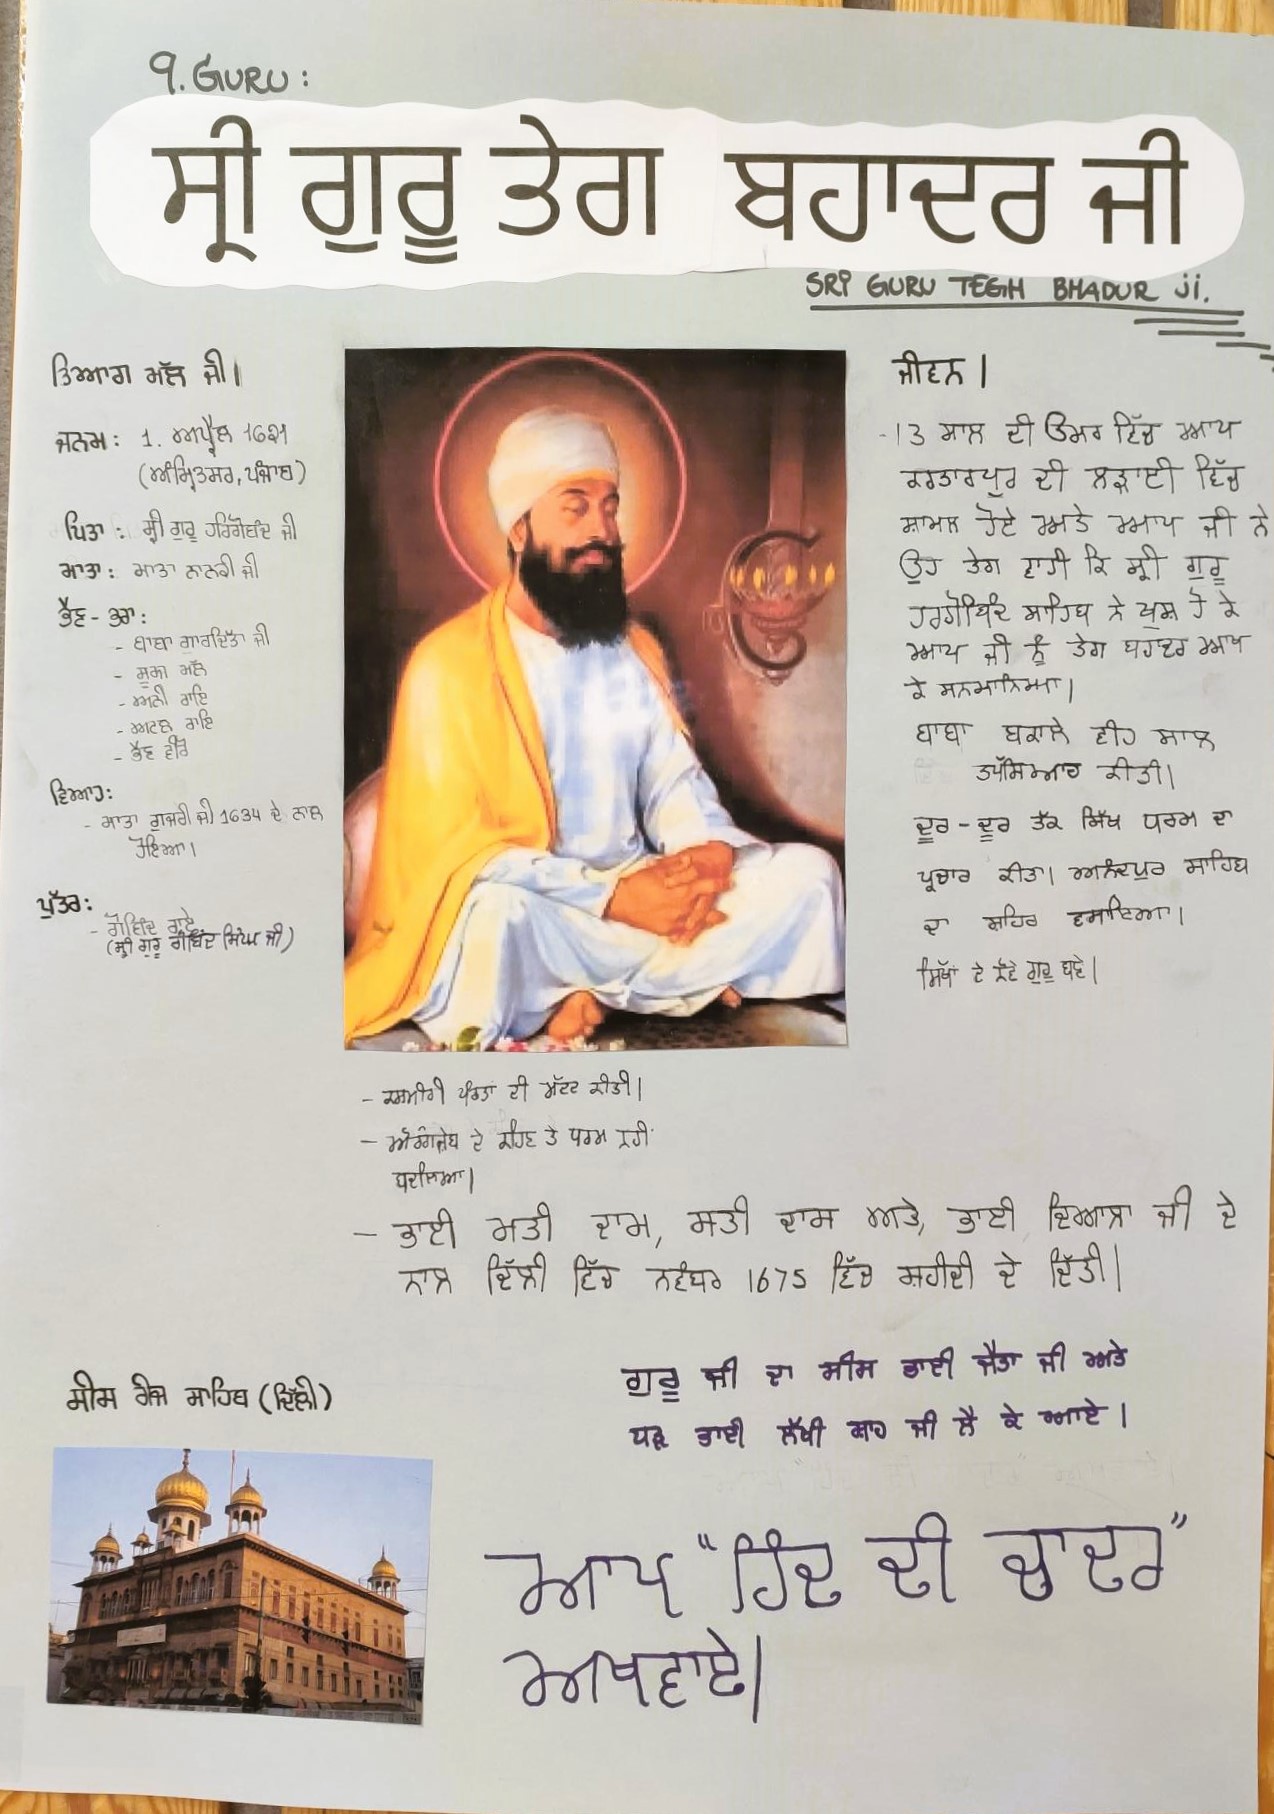 9. GURU:
ਸ੍ਰੀ ਗੁਰੂ ਤੇਗ ਬਹਾਦਰ ਜੀ
SRI GURU TEGH BHADUR Ji.
ਤਿਆਗ ਮੱਲ ਜੀ।
ਜਨਮ: 1. ਅਪ੍ਰੈਲ 1621
(ਅੰਮ੍ਰਿਤਸਰ, ਪੰਜਾਬ)
ਪਿਤਾ: ਸ੍ਰੀ ਗੁਰੂ ਹਰਿਗੋਬਿੰਦ ਜੀ
ਮਾਤਾ: ਮਾਤਾ ਨਾਨਕੀ ਜੀ
ਭੈਣ-ਭਰਾ:
- ਬਾਬਾ ਗੁਰਦਿੱਤਾ ਜੀ
- ਸੂਰਜ ਮੱਲ
- ਅਨੀ ਰਾਇ
- ਅਟਲ ਰਾਇ
- ਭੈਣ ਵੀਰੋ
ਵਿਆਹ:
- ਮਾਤਾ ਗੁਜਰੀ ਜੀ 1634 ਦੇ ਨਾਲ
ਹੋਇਆ।
ਪੁੱਤਰ:
- ਗੋਬਿੰਦ ਰਾਏ
(ਸ੍ਰੀ ਗੁਰੂ ਗੋਬਿੰਦ ਸਿੰਘ ਜੀ)
ਜੀਵਨ।
-13 ਸਾਲ ਦੀ ਉਮਰ ਵਿੱਚ ਆਪ
ਕਰਤਾਰਪੁਰ ਦੀ ਲੜਾਈ ਵਿੱਚ
ਸ਼ਾਮਲ ਹੋਏ ਅਤੇ ਆਪ ਜੀ ਨੇ
ਉਹ ਤੇਗ ਵਾਹੀ ਕਿ ਸ੍ਰੀ ਗੁਰੂ
ਹਰਗੋਬਿੰਦ ਸਾਹਿਬ ਨੇ ਖੁਸ਼ ਹੋ ਕੇ
ਆਪ ਜੀ ਨੂੰ ਤੇਗ ਬਹਾਦਰ ਆਖ
ਕੇ ਸਨਮਾਨਿਆ।
ਬਾਬਾ ਬਕਾਲੇ ਵੀਹ ਸਾਲ
ਤਪੱਸਿਆਹ ਕੀਤੀ।
ਦੂਰ-ਦੂਰ ਤੱਕ ਸਿੱਖ ਧਰਮ ਦਾ
ਪ੍ਰਚਾਰ ਕੀਤਾ। ਅਨੰਦਪੁਰ ਸਾਹਿਬ
ਦਾ ਸ਼ਹਿਰ ਵਸਾਇਆ।
ਸਿੱਖਾਂ ਦੇ ਨੌਵੇਂ ਗੁਰੂ ਬਣੇ।
- ਕਸ਼ਮੀਰੀ ਪੰਡਤਾਂ ਦੀ ਮੱਦਦ ਕੀਤੀ।
- ਔਰੰਗਜ਼ੇਬ ਦੇ ਕਹਿਣ ਤੇ ਧਰਮ ਨਹੀਂ
ਬਦਲਿਆ।
- ਭਾਈ ਮਤੀ ਦਾਸ, ਸਤੀ ਦਾਸ ਅਤੇ, ਭਾਈ ਦਿਆਲਾ ਜੀ ਦੇ
ਨਾਲ ਦਿੱਲੀ ਵਿੱਚ ਨਵੰਬਰ 1675 ਵਿੱਚ ਸ਼ਹੀਦੀ ਦੇ ਦਿੱਤੀ।
ਗੁਰੂ ਜੀ ਦਾ ਸੀਸ ਭਾਈ ਜੈਤਾ ਜੀ ਅਤੇ
ਧੜ ਭਾਈ ਲੱਖੀ ਸ਼ਾਹ ਜੀ ਲੈ ਕੇ ਆਏ।
ਸੀਸ ਗੰਜ ਸਾਹਿਬ (ਦਿੱਲੀ)
ਆਪ "ਹਿੰਦ ਦੀ ਚਾਦਰ"
ਅਖਵਾਏ।